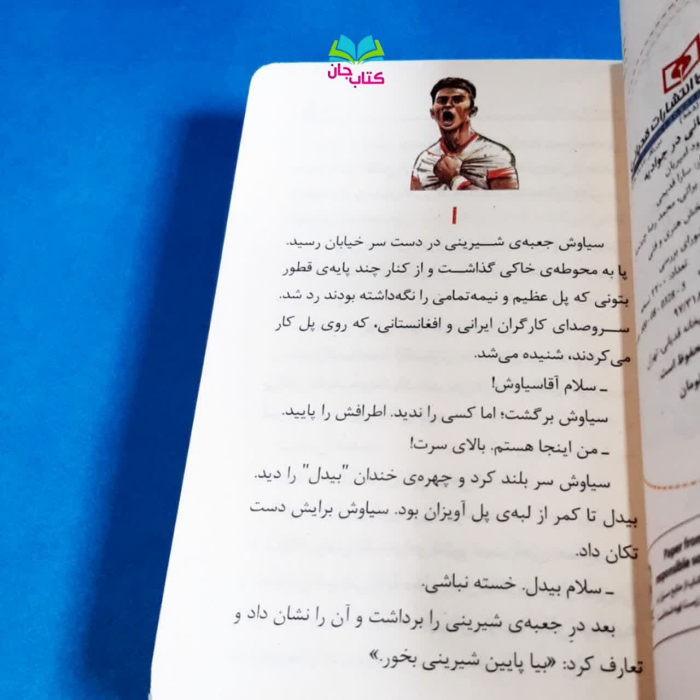 کتاب جان
۱
سیاوش جعبه‌ی شیرینی در دست سر خیابان رسید.
پا به محوطه‌ی خاکی گذاشت و از کنار چند پایه‌ی قطور
بتونی که پل عظیم و نیمه‌تمامی را نگه‌داشته بودند رد شد.
سروصدای کارگران ایرانی و افغانستانی، که روی پل کار
می‌کردند، شنیده می‌شد.
ـ سلام آقاسیاوش!
سیاوش برگشت؛ اما کسی را ندید. اطرافش را پایید.
ـ من اینجا هستم. بالای سرت!
سیاوش سر بلند کرد و چهره‌ی خندان "بیدل" را دید.
بیدل تا کمر از لبه‌ی پل آویزان بود. سیاوش برایش دست
تکان داد.
ـ سلام بیدل. خسته نباشی.
بعد درِ جعبه‌ی شیرینی را برداشت و آن را نشان داد و
تعارف کرد: «بیا پایین شیرینی بخور.»
انتشارات
در جوادیه
محمد رضا
هنری و فنی
تهران
محفوظ است
Paper from
responsible